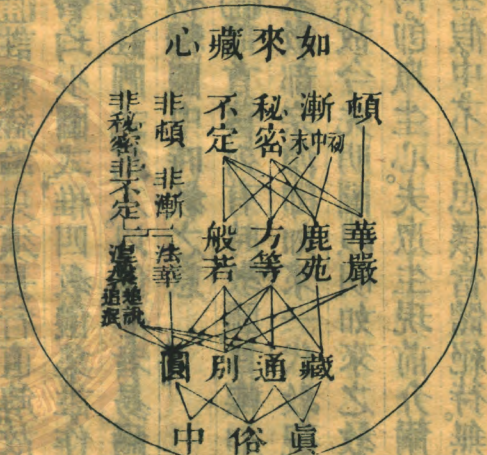 如來藏心
頓
漸
初中末
秘密
不定
非頓 非漸
非秘密非不定
華嚴
鹿苑
方等
般若
法華
涅槃
追說
追泯
藏
通
別
圓
眞
俗
中